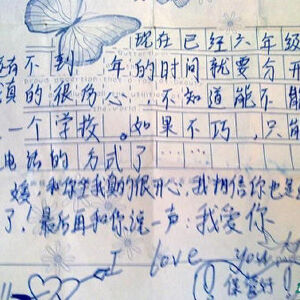 现在已经六年级
有不到一年的时间就要分开
真的很伤心，不知道能不能
一个学校。如果不巧，只能
电话的方式了……
和你 我真的很开心，我相信你也是
了！最后再和你说一声：我爱你
I love you
保管好